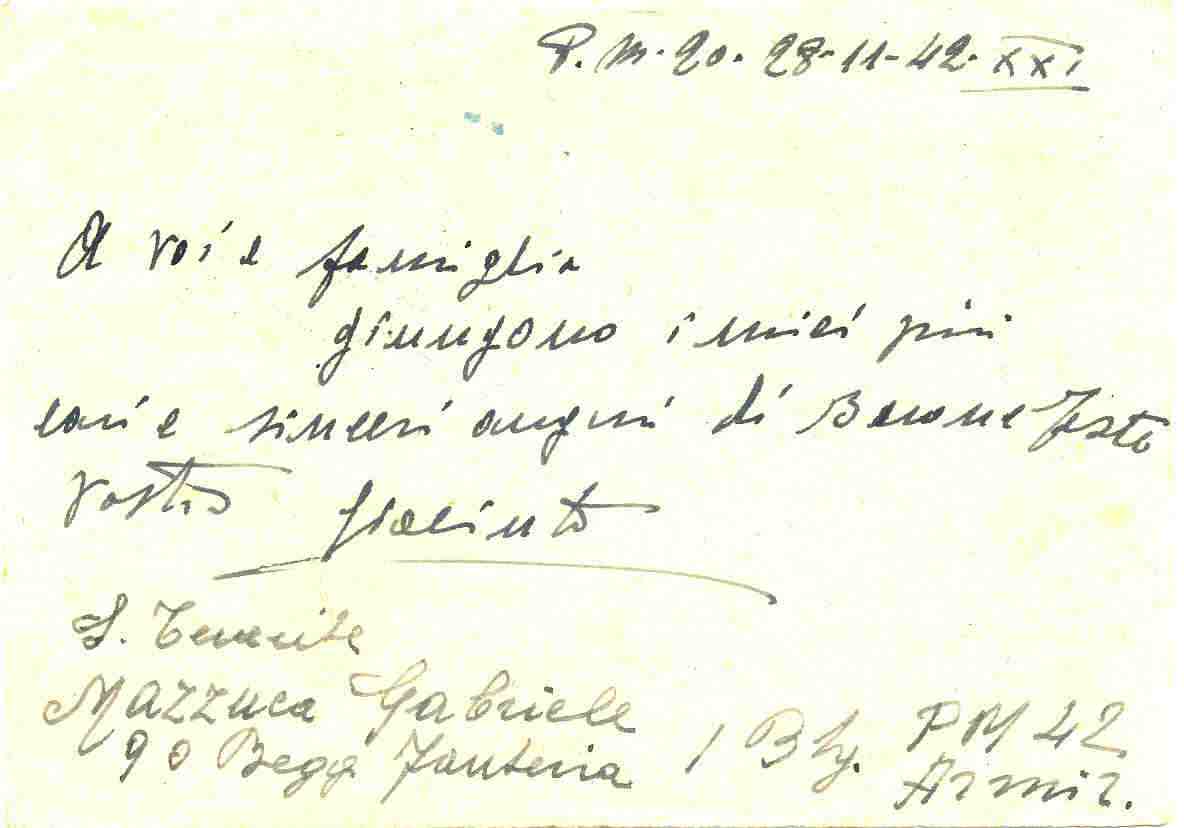 P. M. 20. 28-11-42. XXI
A voi e famiglia
giungono i miei più
cari e sinceri auguri di Buone Feste
Vostro Giacinto
S. Tenente
Mazzuca Gabriele
90 Regg Fanteria 1 Btg. PM 42
Armir.